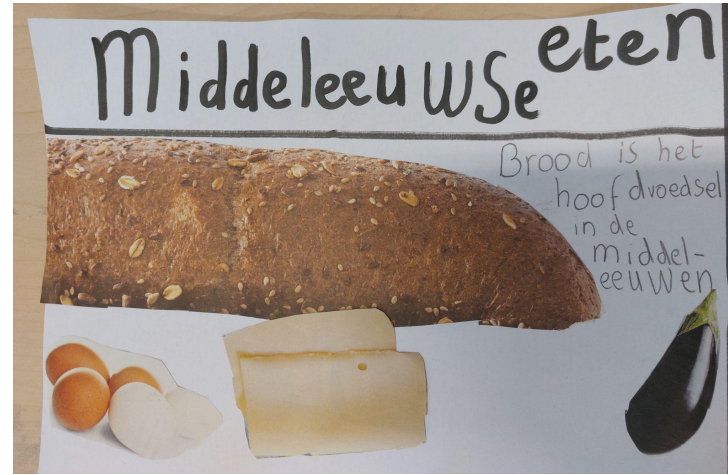 Middeleeuwse eten
Brood is het
hoofdvoedsel
in de
middel-
eeuwen